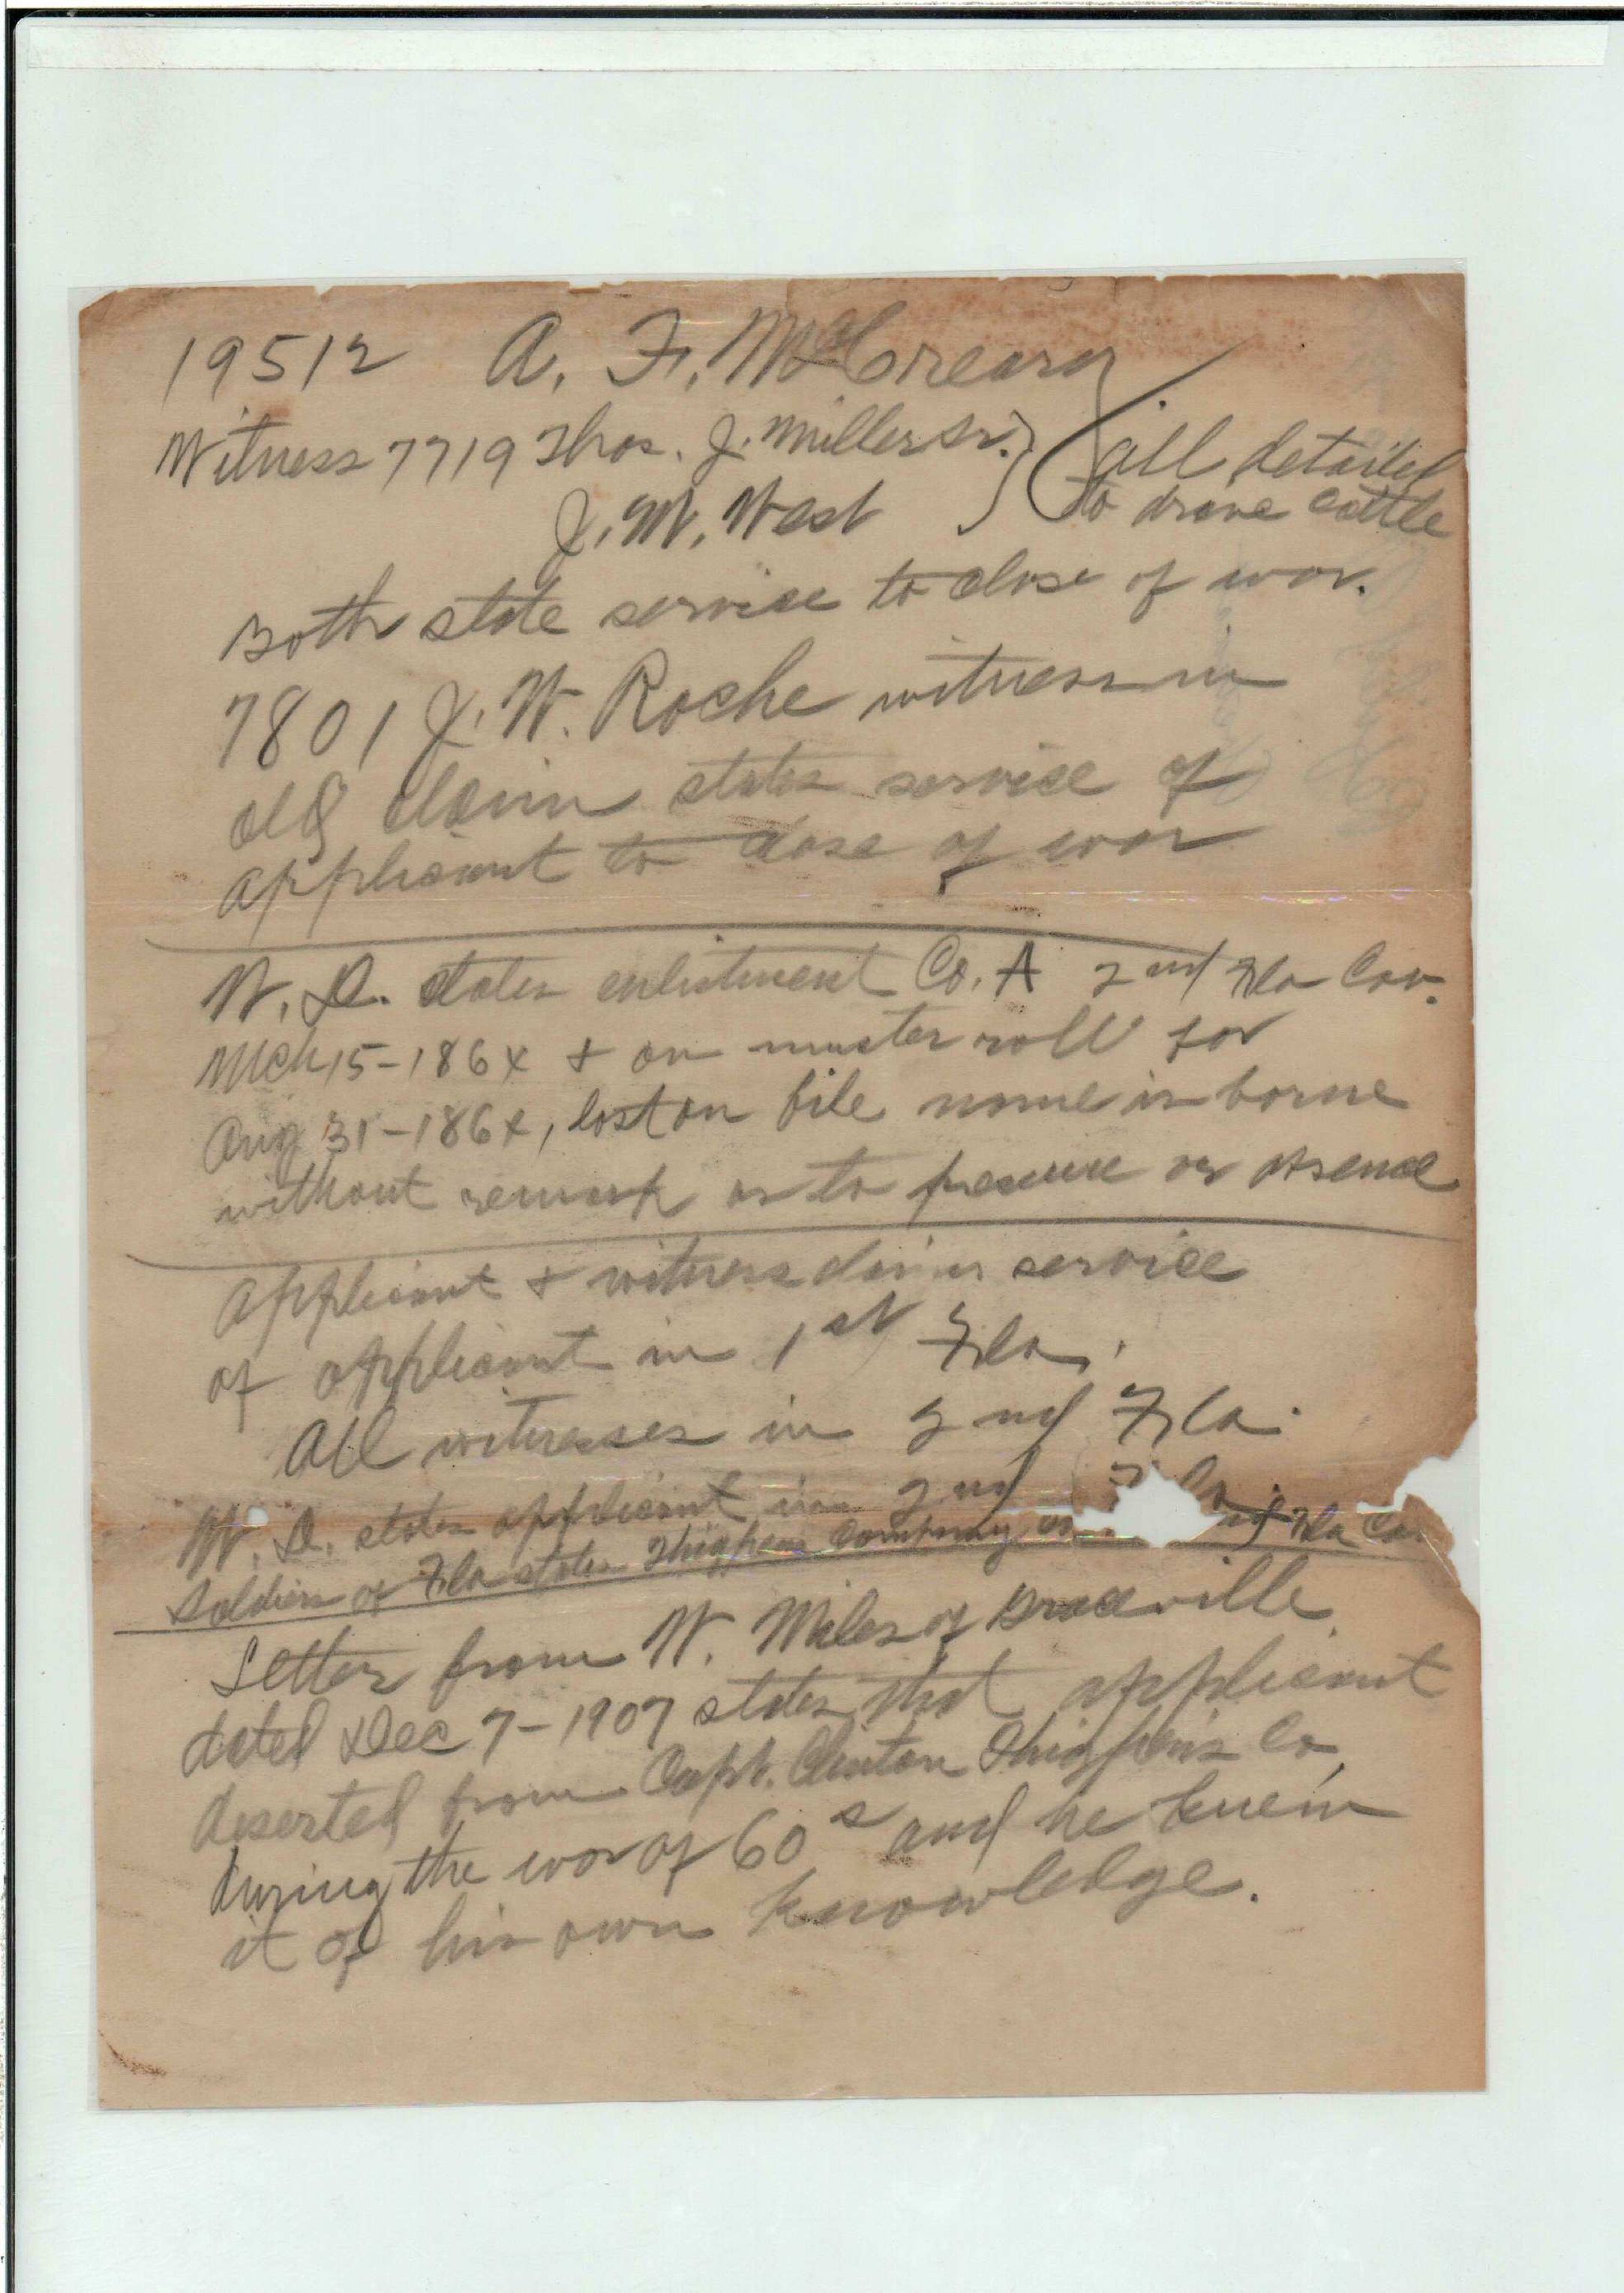 19512 A. F. McCreary
Witness 7719 Thos. J. Miller Sr. } all detailed
J. W. West to drove cattle
Both state service to close of war.
7801 J. W. Roche witness in
old claim states service of
applicant to close of war
W. D. states enlistment Co. A 2nd Fla Cav.
Mch 15-1864 & on muster roll for
Aug 31-1864, last on file name is borne
without remark as to presence or absence
Applicant & witness claims service
of applicant in 1st Fla.
All witnesses in 2nd Fla.
W. D. states applicant in 2nd Fla
Soldiers of Fla states Thigpens Company Fla Cav.
Letter from W. Miles of Graceville
dated Dec 7-1907 states that applicant
deserted from Capt. Clinton Thigpen's Co
during the war of 60s and he knew
it of his own knowledge.